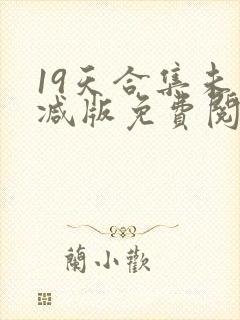 19天合集未
减版免費閱
蘭小歡